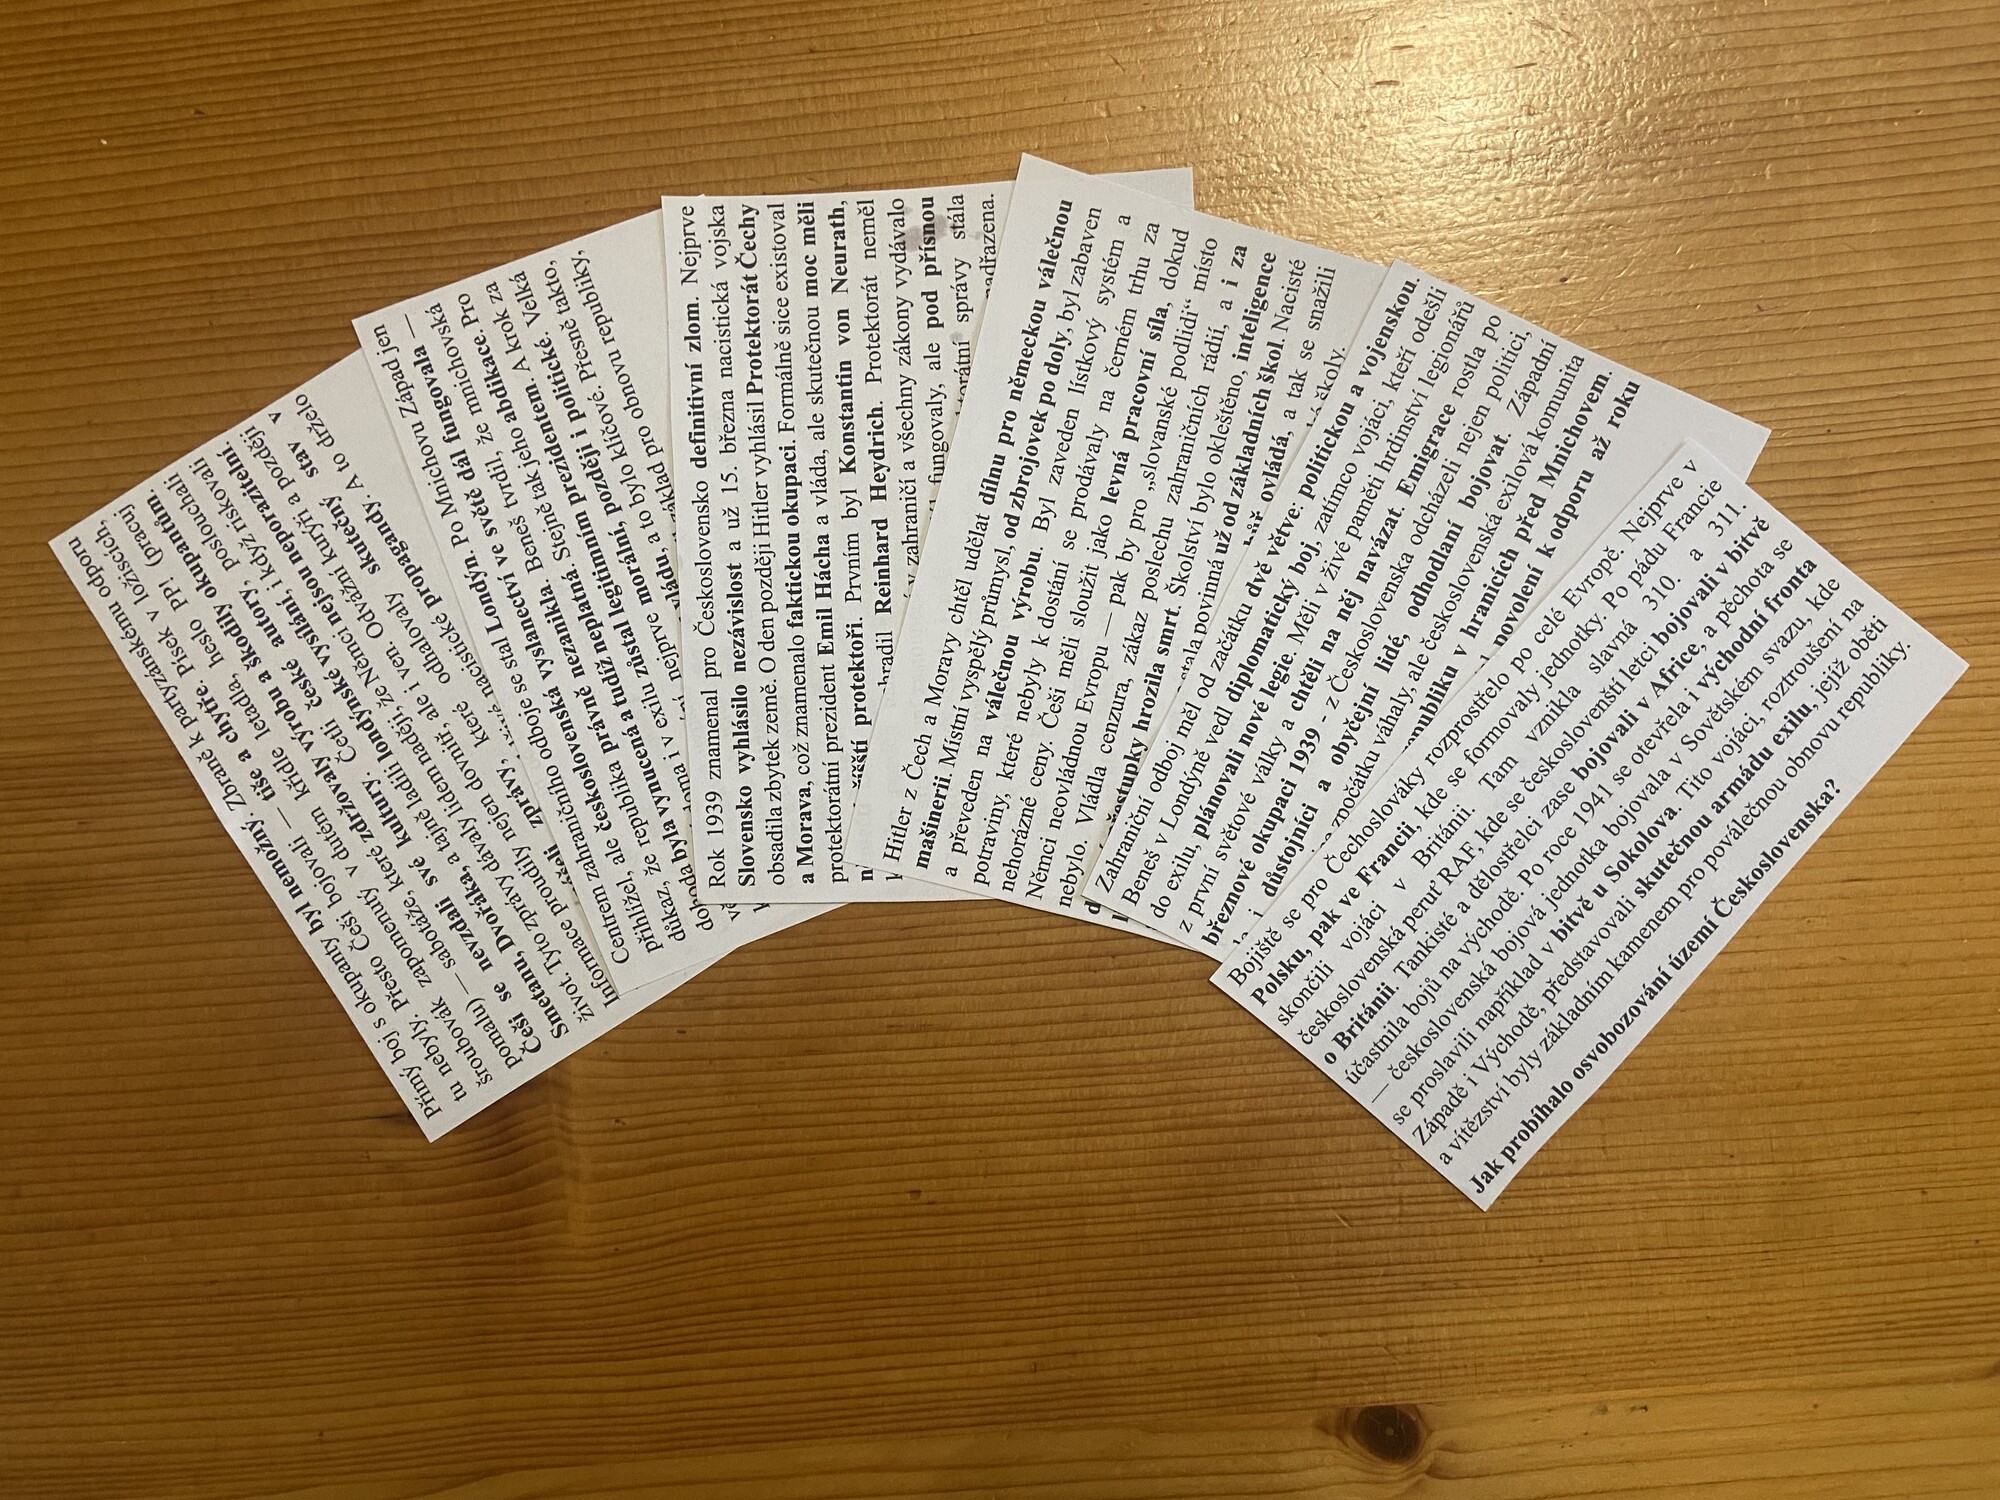 Přímý boj s okupanty byl nemožný. Zbraně k partyzánskému odporu
tu nebyly. Přesto Češi bojovali — tiše a chytře. Písek v ložiscích,
šroubovák zapomenutý v dutém křídle letadla, heslo PP! (pracuj
pomalu) — sabotáže, které zdržovaly výrobu a škodily okupantům.
Češi se nevzdali své kultury. Četli české autory, poslouchali
Smetanu, Dvořáka, a tajně ladili londýnské vysílání, i když riskovali
život. Tyto zprávy dávaly lidem naději, že Němci nejsou neporazitelní.
Informace proudily nejen dovnitř, ale i ven. Odvážní kurýři a později
zprávy, které odhalovaly skutečný stav v
nacistické propagandy. A to drželo
Centrem zahraničního odboje se stal Londýn. Po Mnichovu Západ jen
přihlížel, ale československá vyslanectví ve světě dál fungovala —
důkaz, že republika právně nezanikla. Beneš tvrdil, že mnichovská
dohoda byla vynucená a tudíž neplatná. Stejně tak jeho abdikace. Pro
doma i v exilu zůstal legitimním prezidentem. A krok za
nejprve morální, později i politické. Velká
vládu, a to bylo klíčové. Přesně takto,
základ pro obnovu republiky,
Rok 1939 znamenal pro Československo definitivní zlom. Nejprve
Slovensko vyhlásilo nezávislost a už 15. března nacistická vojska
obsadila zbytek země. O den později Hitler vyhlásil Protektorát Čechy
a Morava, což znamenalo faktickou okupaci. Formálně sice existoval
protektorátní prezident Emil Hácha a vláda, ale skutečnou moc měli
říšští protektoři. Prvním byl Konstantin von Neurath,
Reinhard Heydrich. Protektorát neměl
v zahraničí a všechny zákony vydávalo
fungovaly, ale pod přísnou
správy stála
nadřazena.
Hitler z Čech a Moravy chtěl udělat dílnu pro německou válečnou
mašinerii. Místní vyspělý průmysl, od zbrojovek po doly, byl zabaven
a převeden na válečnou výrobu. Byl zaveden lístkový systém a
potraviny, které nebyly k dostání se prodávaly na černém trhu za
nehorázné ceny. Češi měli sloužit jako levná pracovní síla, dokud
Němci neovládnou Evropu — pak by pro „slovanské podlidi“ místo
nebylo. Vládla cenzura, zákaz poslechu zahraničních rádií, a i za
přestupky hrozila smrt. Školství bylo okleštěno, inteligence
stala povinná už od základních škol. Nacisté
ovládá, a tak se snažili
školy.
Zahraniční odboj měl od začátku dvě větve: politickou a vojenskou.
Beneš v Londýně vedl diplomatický boj, zatímco vojáci, kteří odešli
do exilu, plánovali nové legie. Měli v živé paměti hrdinství legionářů
z první světové války a chtěli na něj navázat. Emigrace rostla po
březnové okupaci 1939 - z Československa odcházeli nejen politici,
důstojníci a obyčejní lidé, odhodlaní bojovat. Západní
zpočátku váhaly, ale československá exilová komunita
republiku v hranicích před Mnichovem.
povolení k odporu až roku
Bojiště se pro Čechoslováky rozprostřelo po celé Evropě. Nejprve v
Polsku, pak ve Francii, kde se formovaly jednotky. Po pádu Francie
skončili vojáci v Británii. Tam vznikla slavná 310. a 311.
československá peruť RAF, kde se českoslovenští letci bojovali v bitvě
o Británii. Tankisté a dělostřelci zase bojovali v Africe, a pěchota se
účastnila bojů na východě. Po roce 1941 se otevřela i východní fronta
— československá bojová jednotka bojovala v Sovětském svazu, kde
se proslavili například v bitvě u Sokolova. Tito vojáci, roztroušení na
Západě i Východě, představovali skutečnou armádu exilu, jejíž oběti
a vítězství byly základním kamenem pro poválečnou obnovu republiky.
Jak probíhalo osvobozování území Československa?